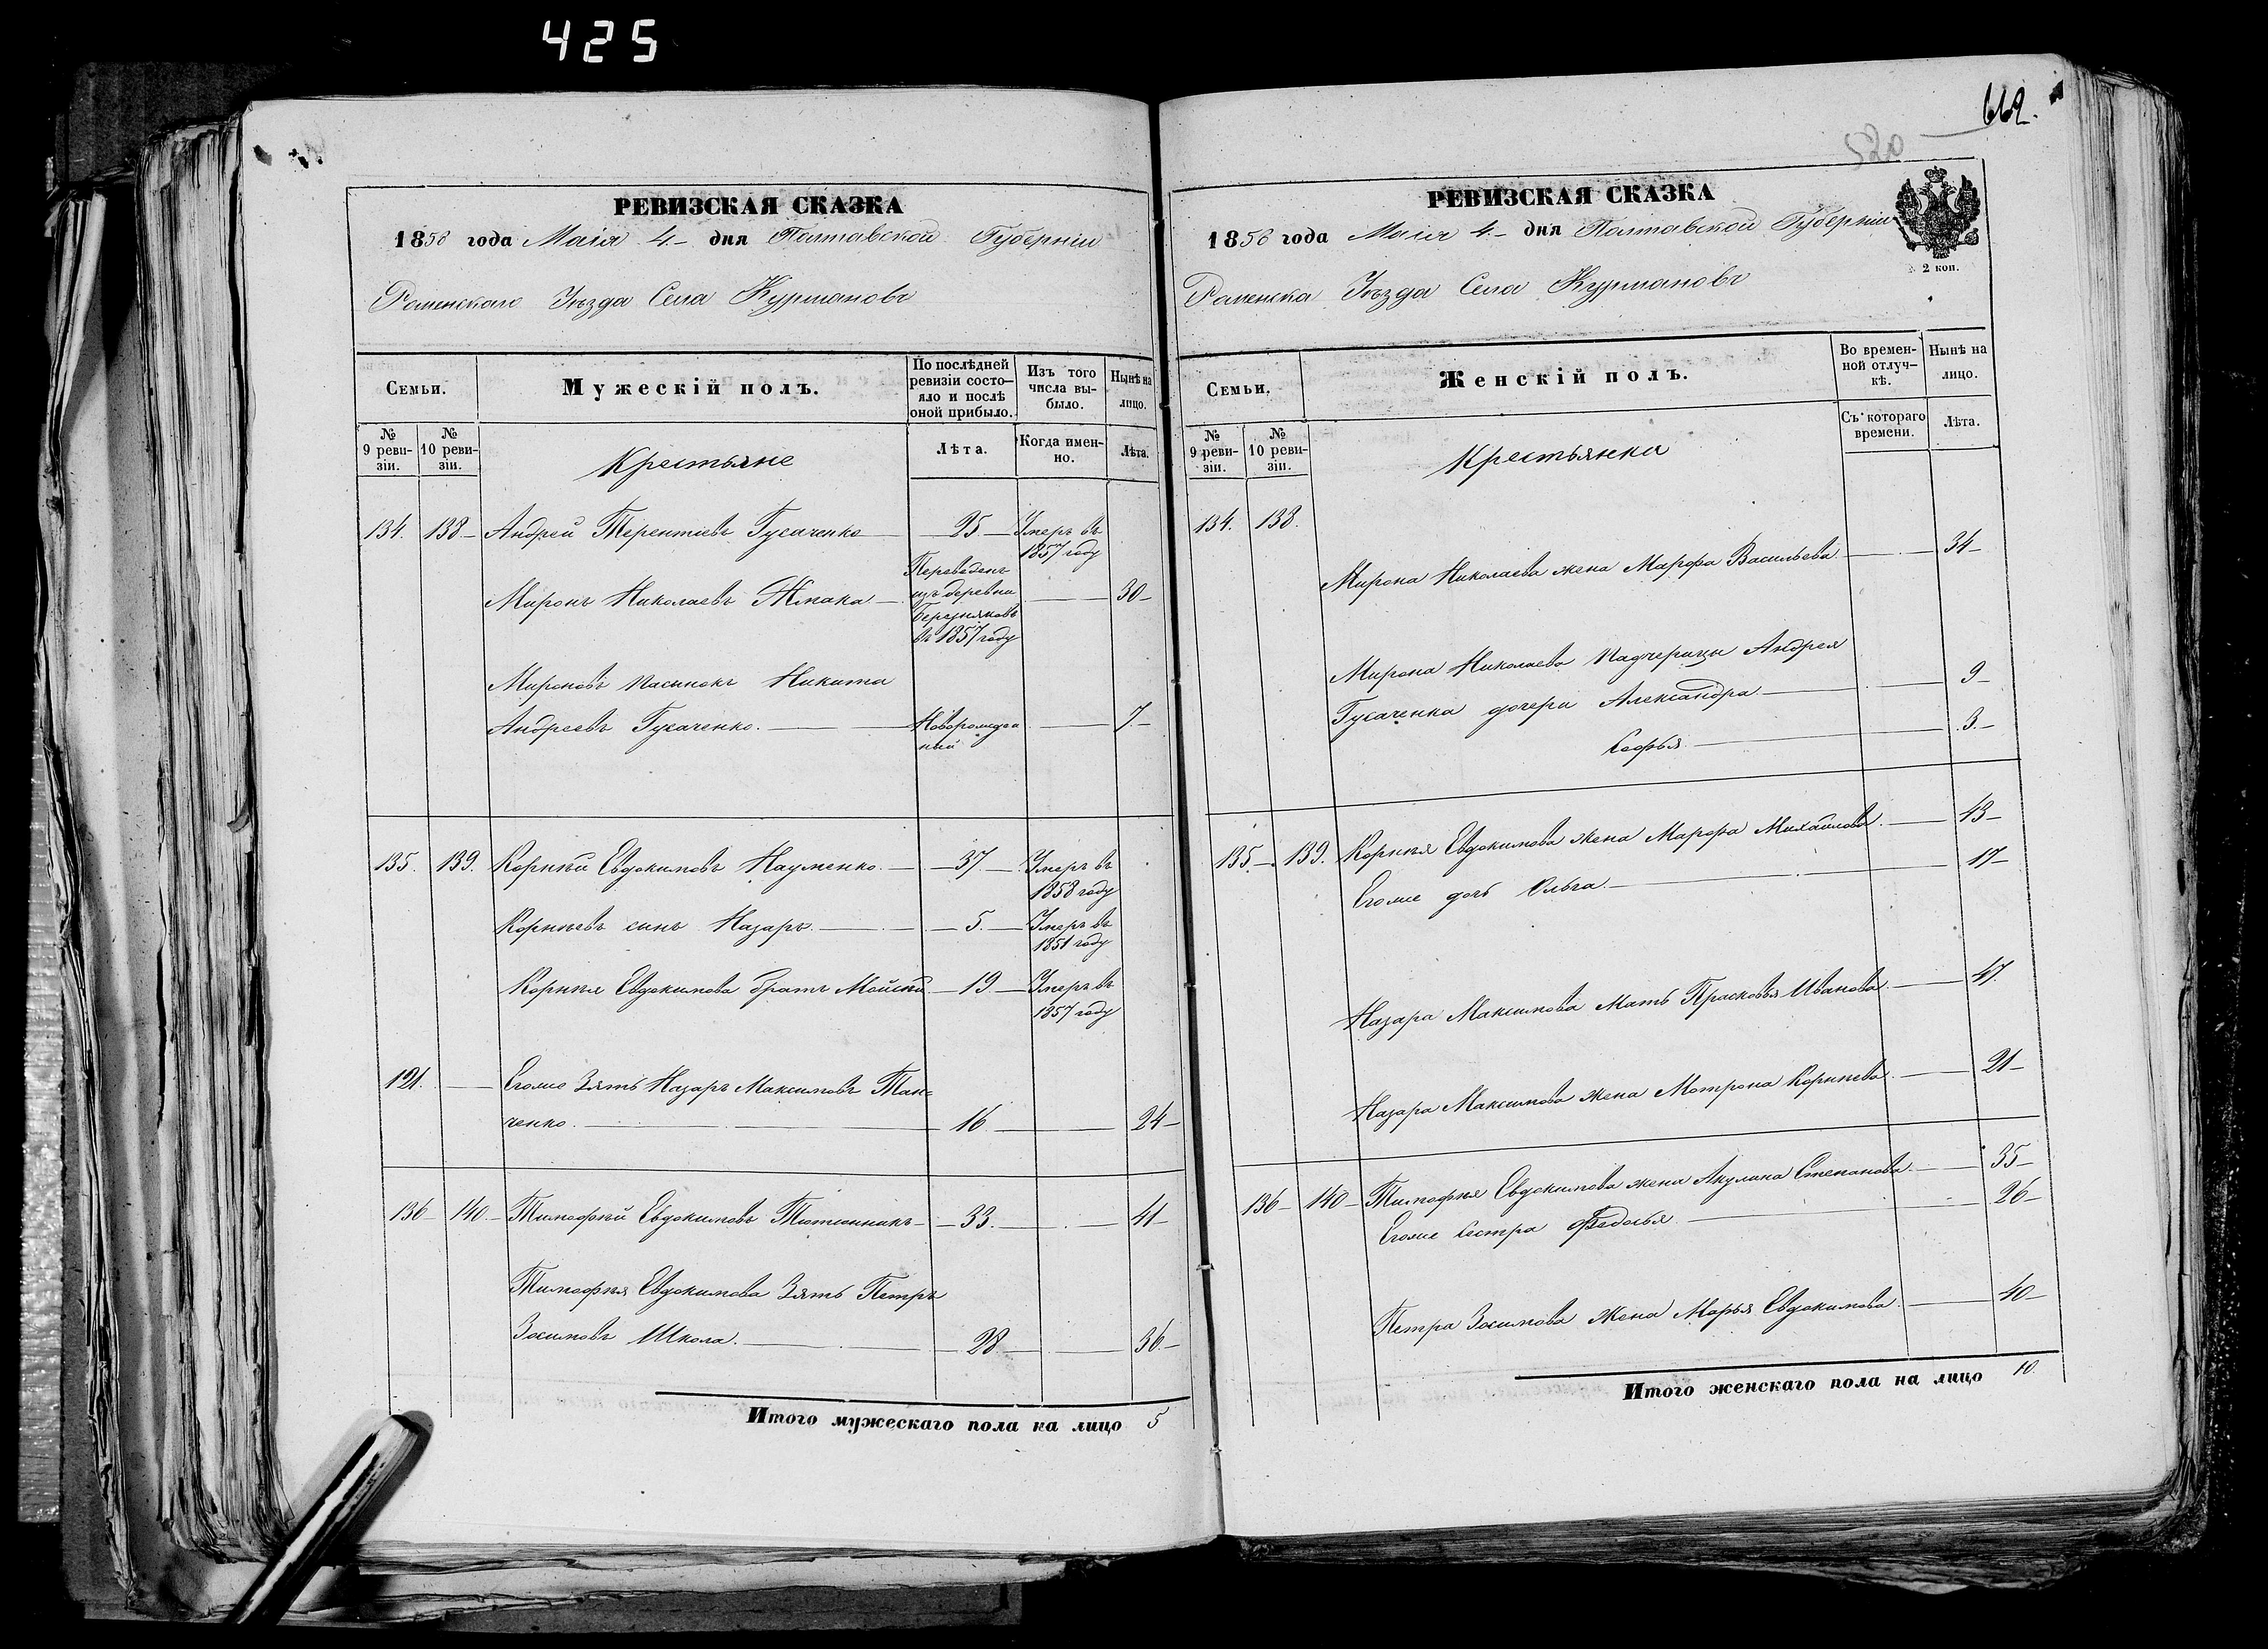 425
РЕВИЗСКАЯ СКАЗКА
1858 года Маія 4 дня Полтавской Губерніи
Роменскаго Уѣзда Села Курмановъ
Семьи.
Мужескій полъ.
По послѣдней ревизіи состо-
яло и послѣ оной прибыло.
Изъ того числа вы-
было.
Нынѣ на лицо.
№ 9 реви-
зіи.
№ 10 реви-
зіи.
Крестьяне
Лѣта.
Когда имен-
но.
Лѣта.
134. 138 Андрей Терентіевъ Гусаченко 25 Умеръ въ
1857 году
Миронъ Николаевъ 30
Переведенъ
изъ деревни
Березняковъ
въ 1857 году
Мироновъ пасынокъ Никита
Андреевъ Гусаченко. Новорожден
ный 7
135. 139. Корнѣй Евдокимовъ Науменко 37 Умеръ въ
1858 году
Корнѣевъ сынъ Назаръ 5 Умеръ въ
1851 году
Корнѣя Евдокимова братъ Мойсѣй 19 Умеръ въ
1857 году
121. Егоже Зять Назаръ Максимовъ Тан=
ченко 16 24
136 140 Тимофѣй Евдокимовъ 33. 41
Тимофѣя Евдокимова Зять Петръ
Зосимовъ Школа 28 36
Итого мужескаго пола на лицо 5
662.
520
РЕВИЗСКАЯ СКАЗКА
1858 года Маія 4 дня Полтавской Губерніи
Роменска Уѣзда Села Курмановъ
2 коп.
Семьи.
Женскій полъ.
Во времен-
ной отлуч-
кѣ.
Нынѣ на лицо.
№ 9 реви-
зіи.
№ 10 реви-
зіи.
Крестьянки
Съ котораго времени.
Лѣта.
134. 138.
Мирона Николаева жена Марфа Васильева 34
Мирона Николаева Падчерицы Андрея
Гусаченка дочери Александра 9
Софья 3
135 139. Корнѣя Евдокимова жена Марфа Михайлова 43
Егоже дочь Ольга 17
Назара Максимова Мать Прасковья Иванова 47
Назара Максимова жена Мотрона Корнѣева 21
136 140 Тимофѣя Евдокимова жена Акулина Степанова 35
Егоже Сестра Федосья 26
Петра Зосимова Жена Марья Евдокимова 40
Итого женскаго пола на лицо 10.